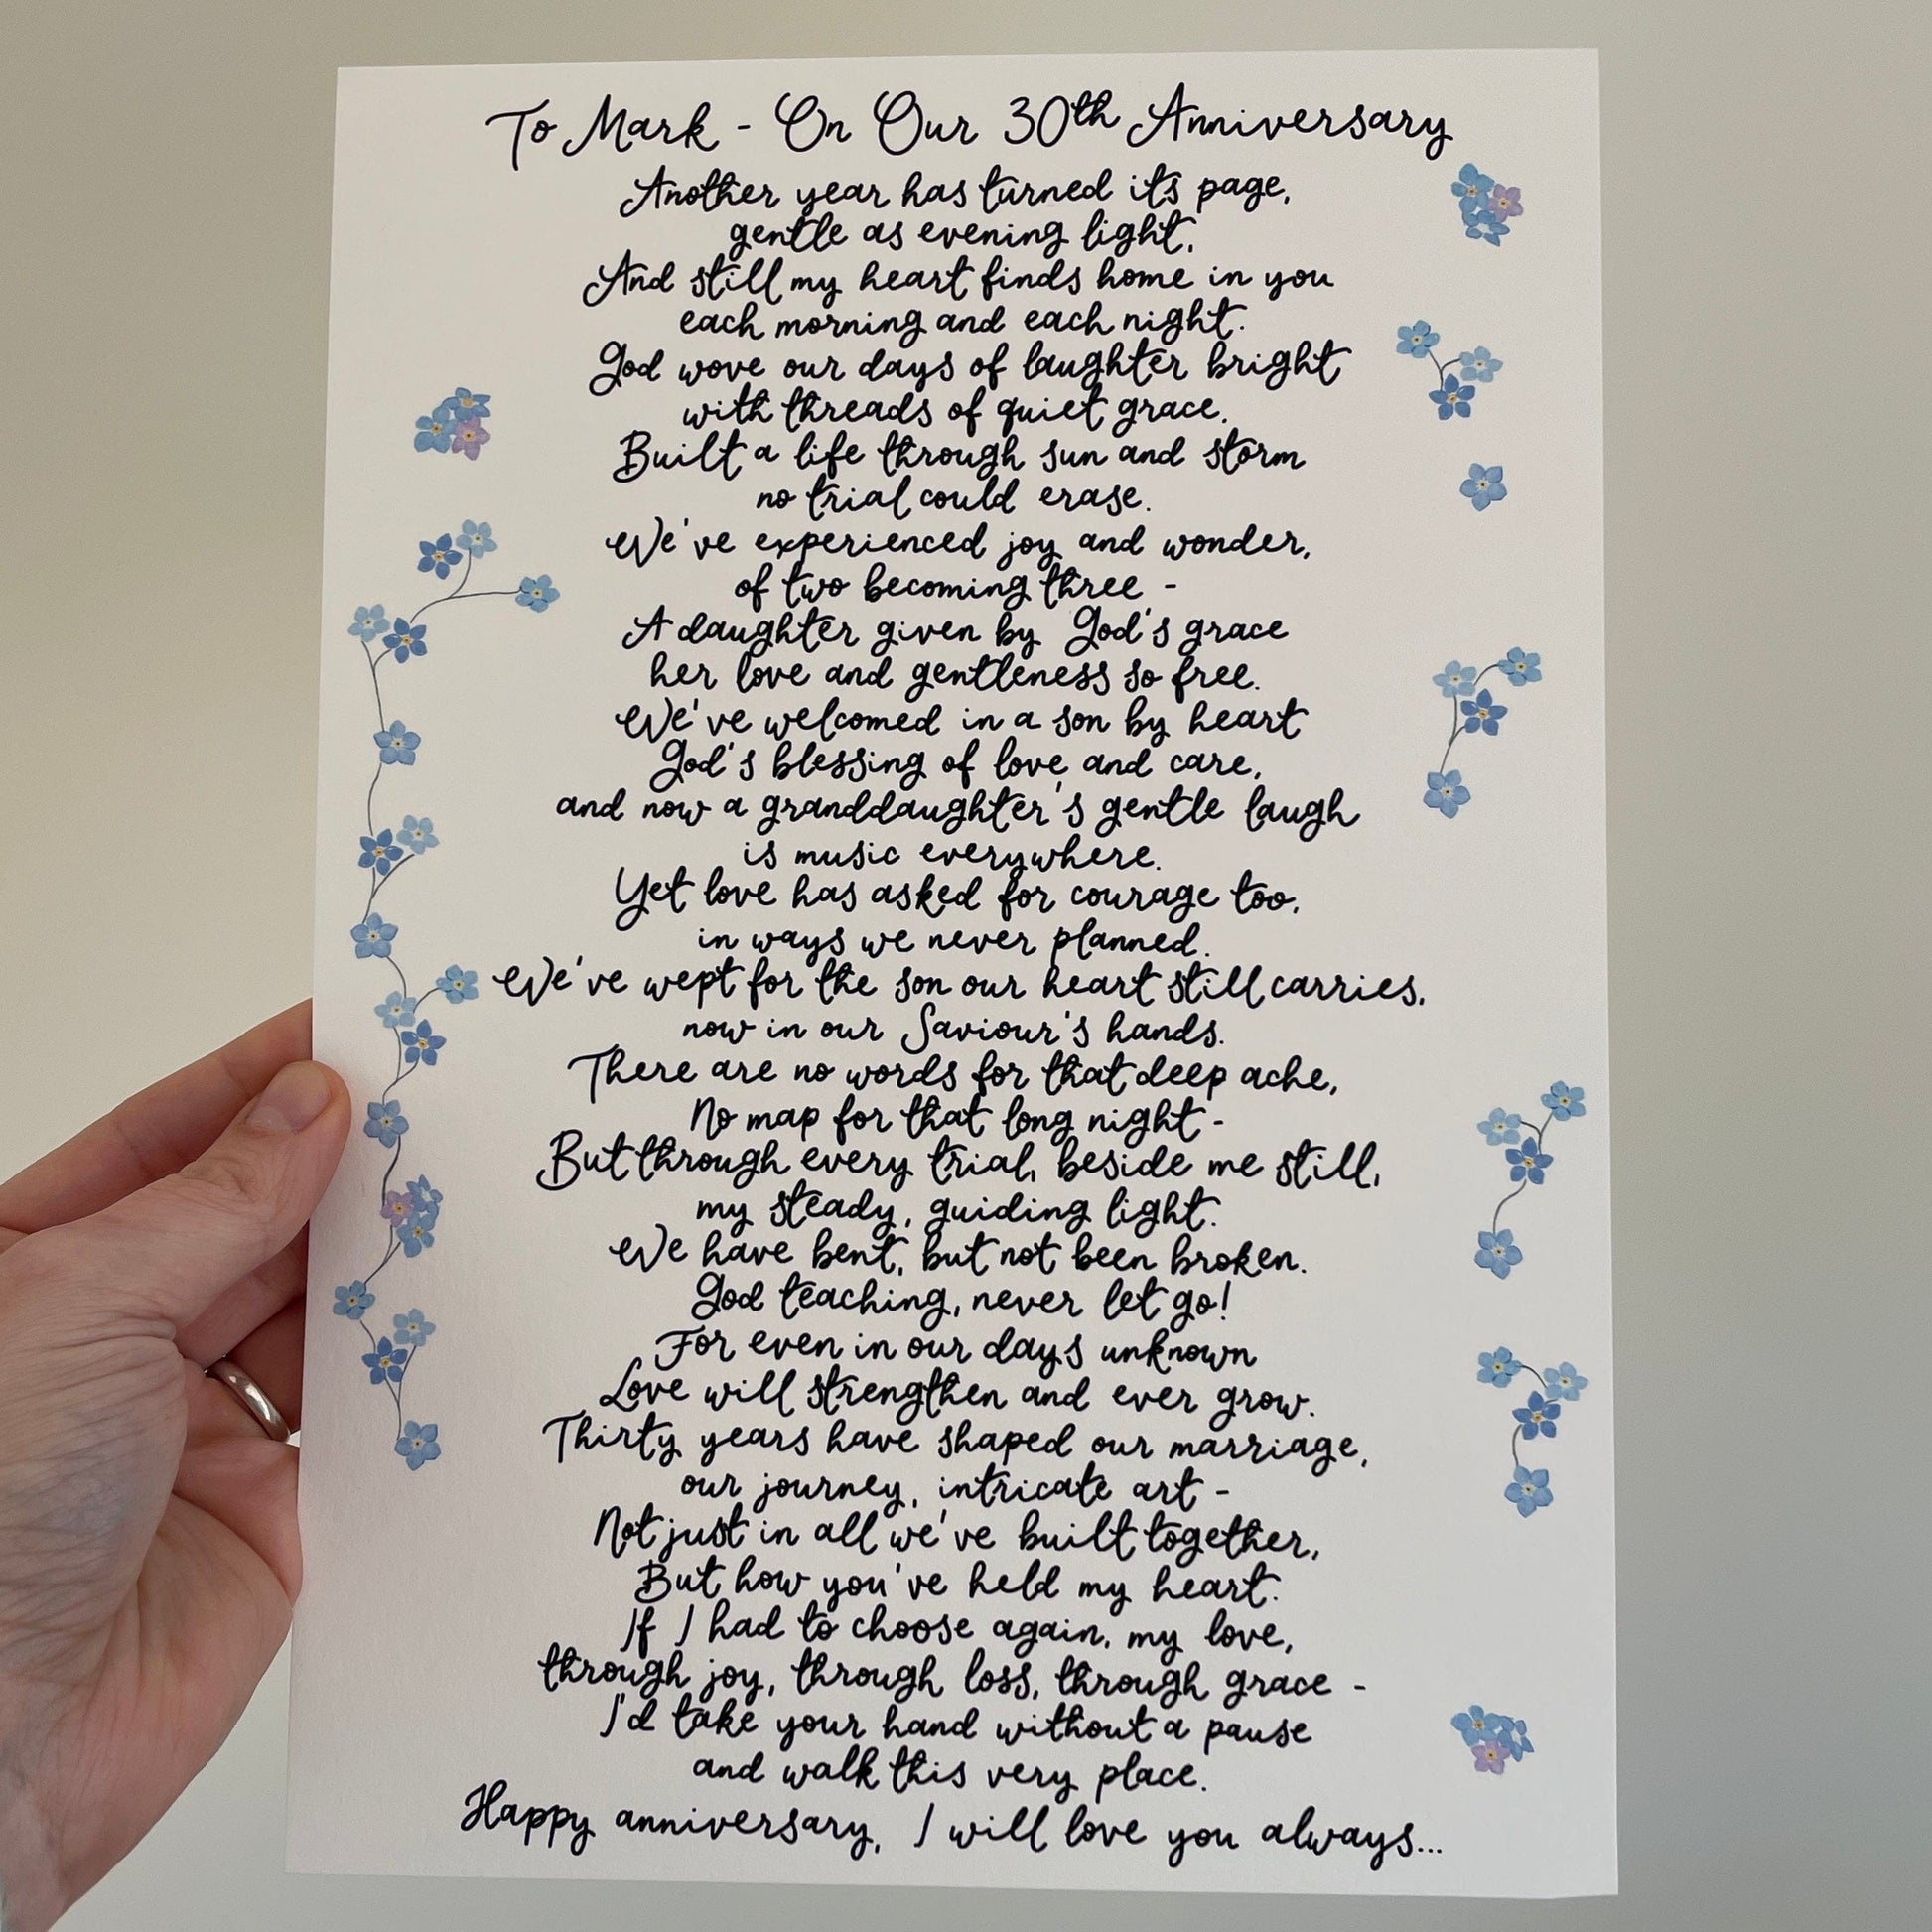 To Mark - On Our 30th Anniversary
Another year has turned its page,
gentle as evening light,
And still my heart finds home in you
each morning and each night.
God wove our days of laughter bright
with threads of quiet grace.
Built a life through sun and storm
no trial could erase.
We've experienced joy and wonder,
of two becoming three -
A daughter given by God's grace
her love and gentleness so free.
We've welcomed in a son by heart
God's blessing of love and care,
and now a granddaughter's gentle laugh
is music everywhere.
Yet love has asked for courage too,
in ways we never planned.
We've wept for the son our heart still carries,
now in our Saviour's hands.
There are no words for that deep ache,
No map for that long night -
But through every trial, beside me still,
my steady, guiding light.
We have bent, but not been broken.
God teaching, never let go!
For even in our days unknown
Love will strengthen and ever grow.
Thirty years have shaped our marriage,
our journey, intricate art -
Not just in all we've built together,
But how you've held my heart.
If I had to choose again, my love,
through joy, through loss, through grace -
I'd take your hand without a pause
and walk this very place.
Happy anniversary, I will love you always...